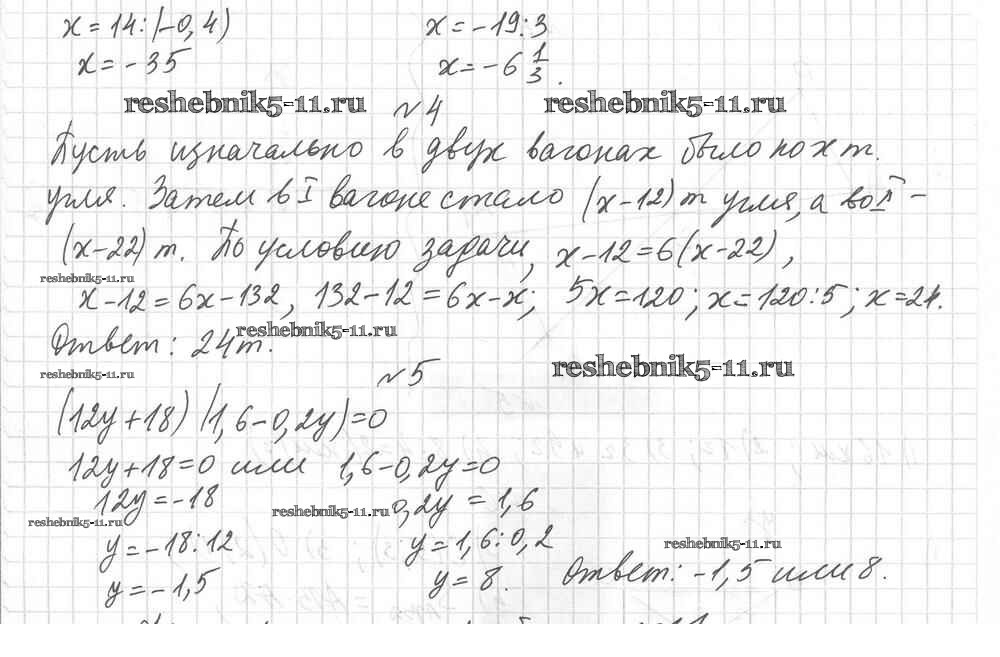 x=14:(-0,4) x=-19:3
x=-35 x=-6 1/3.
reshebnik5-11.ru №4 reshebnik5-11.ru
Пусть изначально в двух вагонах было по x т.
угля. Затем в I вагоне стало (x-12) т угля, а во II -
(x-22) т. По условию задачи, x-12=6(x-22),
reshebnik5-11.ru
x-12=6x-132, 132-12=6x-x; 5x=120; x=120:5; x=24.
reshebnik5-11.ru
Ответ: 24т.
reshebnik5-11.ru №5 reshebnik5-11.ru
(12y+18)(1,6-0,2y)=0
12y+18=0 или 1,6-0,2y=0
12y=-18 0,2y=1,6
reshebnik5-11.ru reshebnik5-11.ru
y=-18:12 y=1,6:0,2
reshebnik5-11.ru
y=-1,5 y=8. Ответ: -1,5 или 8.